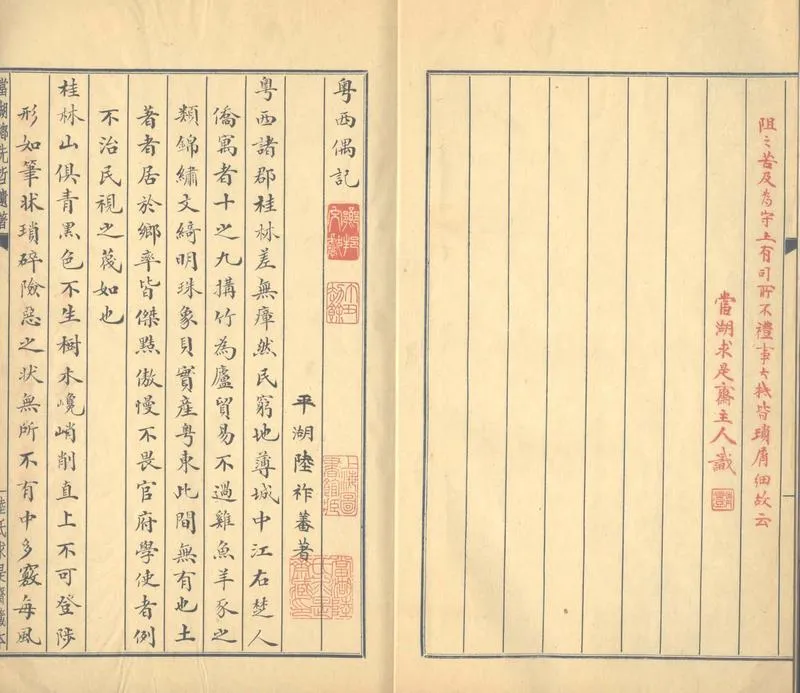 阻之苦及為守土有司所不禮事大抵皆瑣屑細故云
當湖求是齋主人識
粵西偶記
平湖陸祚蕃著
上海圖書館藏
粵西諸郡桂林差無瘴然民窮地薄城中江右楚人
僑寓者十之九搆竹為廬貿易不過雞魚羊豕之
類錦繡文綺明珠象貝實產粵東此間無有也土
著者居於鄉率皆傑黠傲慢不畏官府學使者例
不治民視之蔑如也
桂林山俱青黑色不生樹木巉峭削直上不可登陟
形如筆狀瑣碎險惡之狀無所不有中多竅每風
當湖鄉先哲遺著
陸氏求是齋藏本